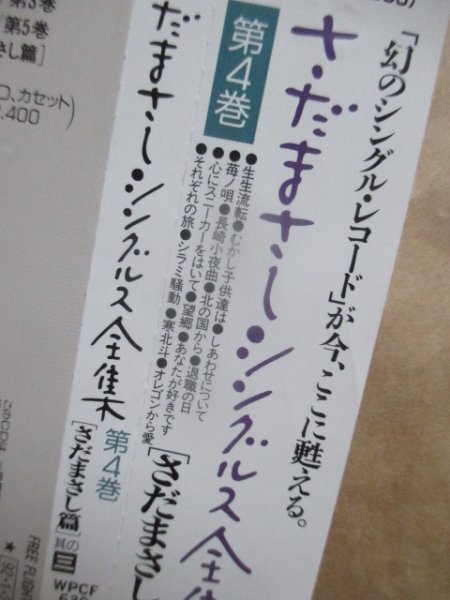 「幻のシングル・レコード」が今、ここに甦える。
さだまさしシングルス全集
第4巻
●生生流転●むかし子供達は●しあわせについて
●苺ノ唄●長崎小夜曲●北の国から●退職の日
●心にスニーカーをはいて●望郷●あなたが好きです
●それぞれの旅●シラミ騒動●寒北斗●オレゴンから愛
[さだまさし
だまさしシングルス全集
第4巻
[さだまさし篇]
其の三
WPCF
第5巻
さし篇]
カセット)
,400
FREE FLIGHT